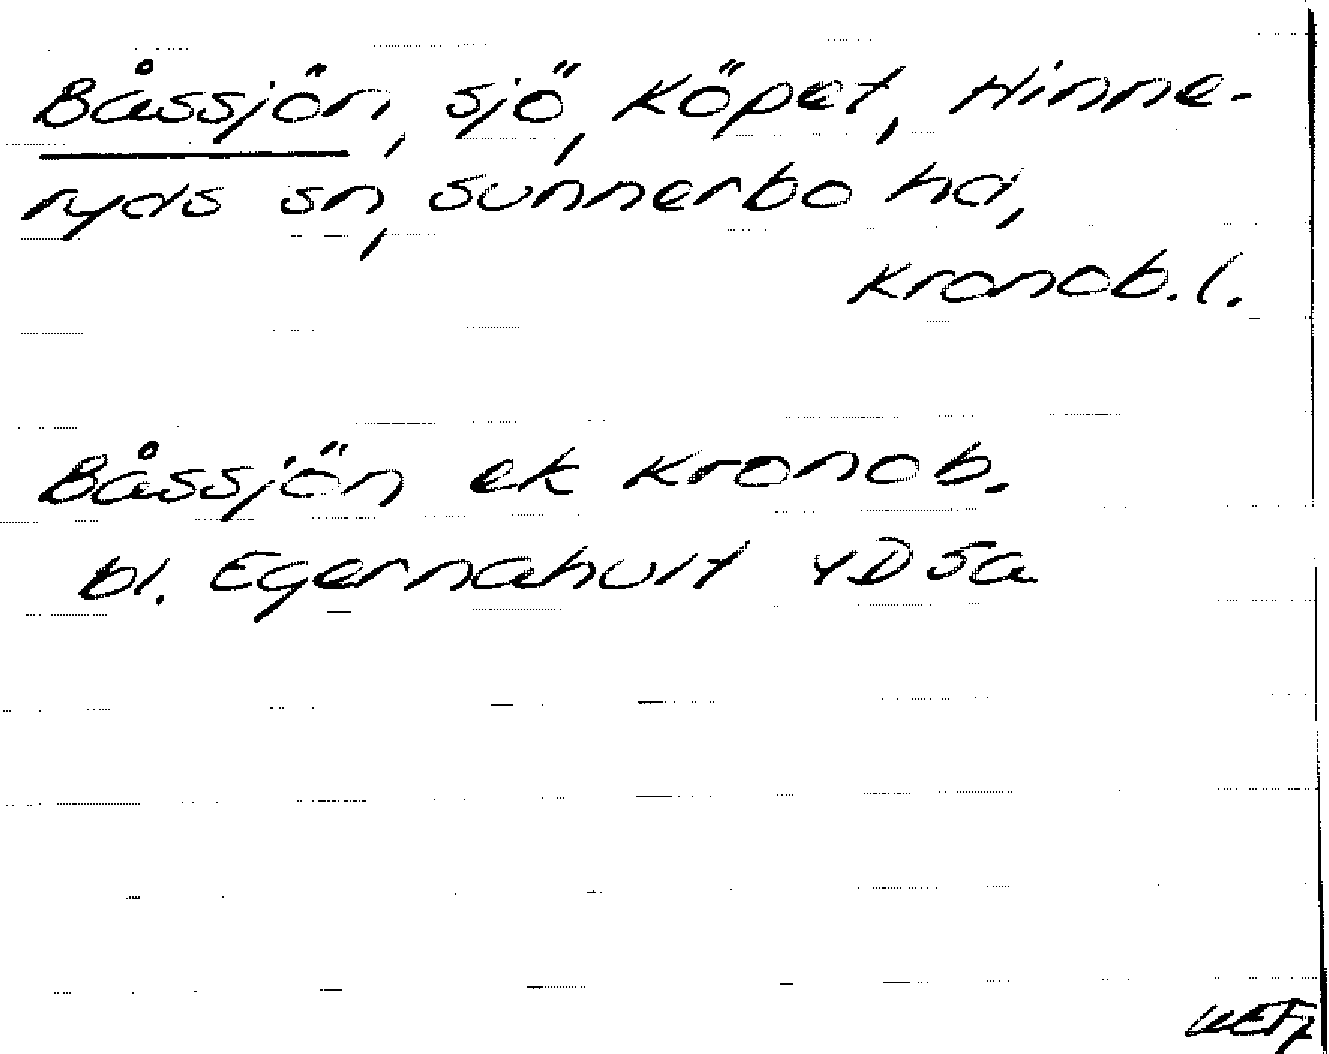 Båssjön, sjö, Köpet, Hinne-
ryds sn, Sunnerbo hd,
Kronob. l.
Båssjön ek Kronob.
bl. Egernahult 4D5a